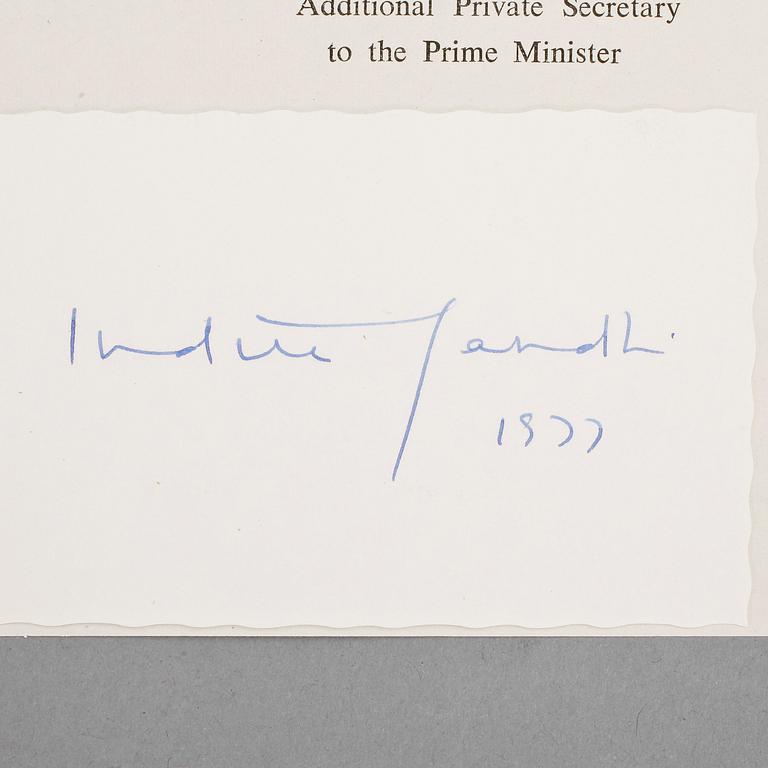 Additional Private Secretary
to the Prime Minister
Indira Gandhi
1977